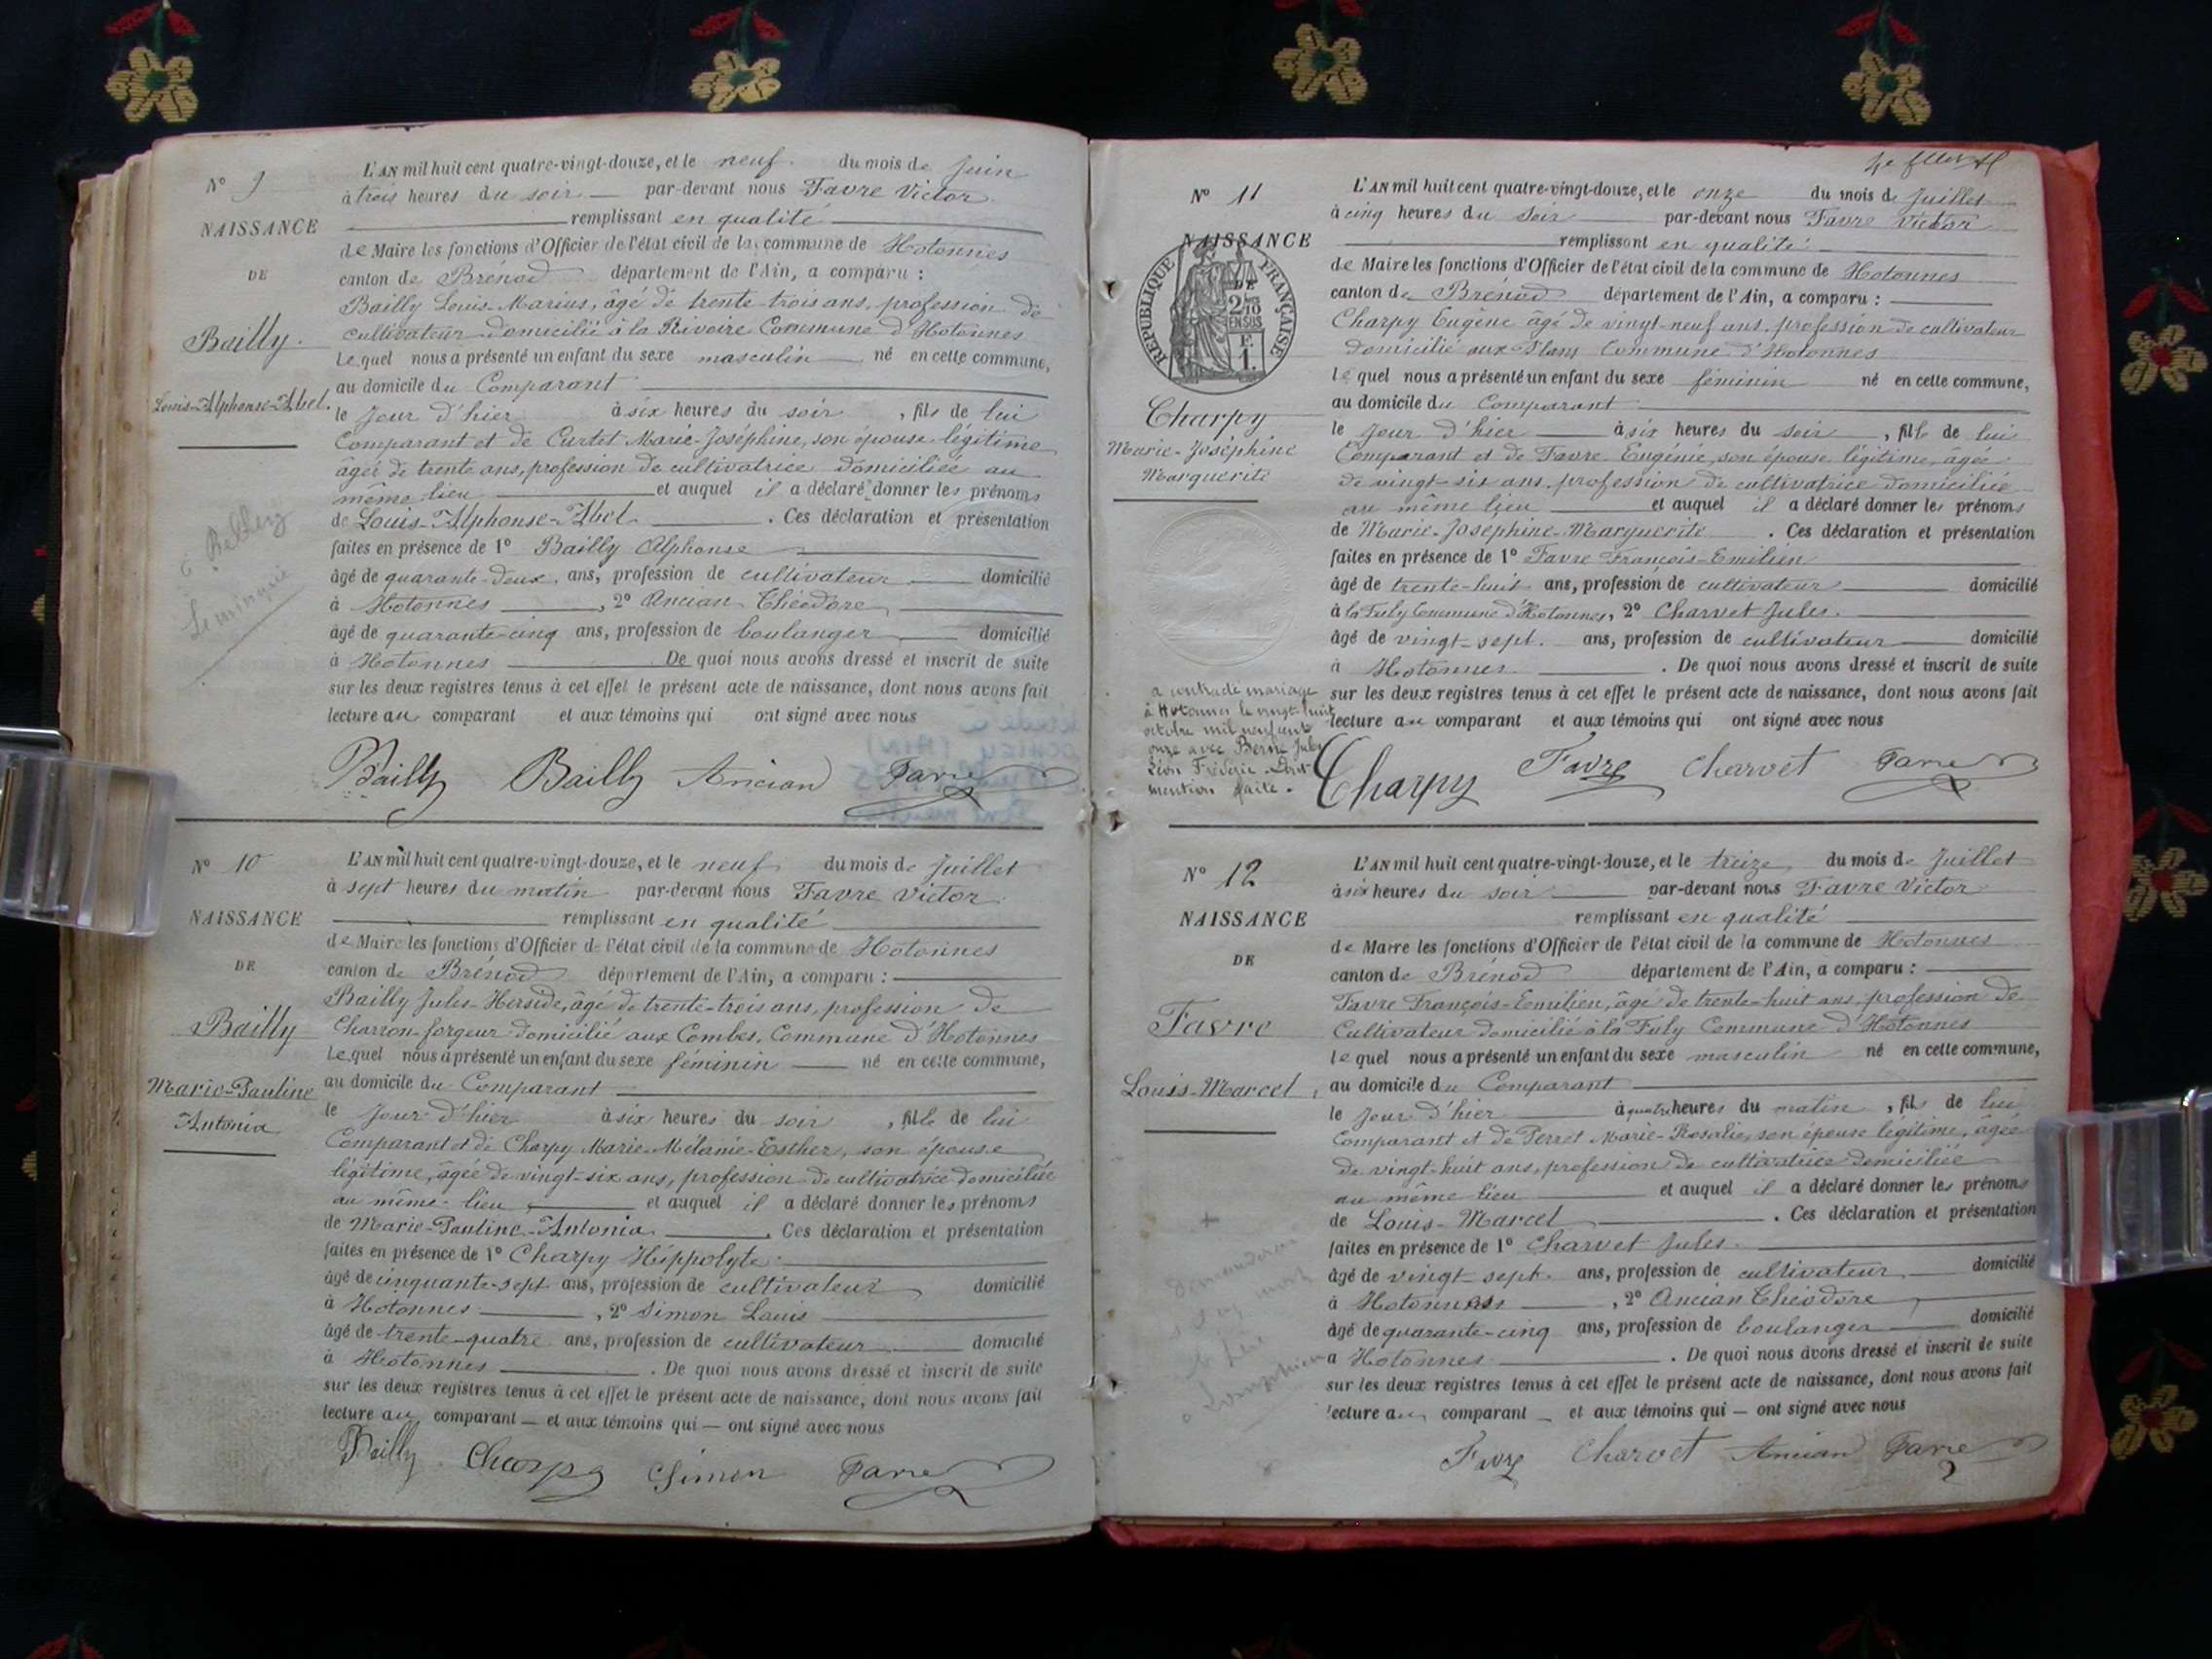 N° 9
NAISSANCE
DE
Bailly
Louis-Alphonse-Abel.
L'AN mil huit cent quatre-vingt-douze, et le neuf du mois de Juin
à trois heures du soir par-devant nous Favre Victor
remplissant en qualité
de Maire les fonctions d'Officier de l'état civil de la commune de Hotonnes
canton de Brénod département de l'Ain, a comparu :
Bailly Louis-Marius, âgé de trente-trois ans, profession de
cultivateur domicilié à la Rivoire Commune d'Hotonnes
Lequel nous a présenté un enfant du sexe masculin né en cette commune,
au domicile du Comparant
le Jour d'hier à six heures du soir, fils de lui
Comparant et de Curtet Marie-Joséphine, son épouse légitime
âgée de trente ans, profession de cultivatrice domiciliée au
même lieu et auquel il a déclaré donner les prénoms
de Louis-Alphonse-Abel. Ces déclaration et présentation
faites en présence de 1° Bailly Alphonse
âgé de quarante-deux ans, profession de cultivateur domicilié
à Hotonnes, 2° Ancian Théodore
âgé de quarante-cinq ans, profession de boulanger domicilié
à Hotonnes De quoi nous avons dressé et inscrit de suite
sur les deux registres tenus à cet effet le présent acte de naissance, dont nous avons fait
lecture au comparant et aux témoins qui ont signé avec nous
Bailly Bailly Ancian Favre
N° 10
NAISSANCE
DE
Bailly
Marie-Pauline
Antonia
L'AN mil huit cent quatre-vingt-douze, et le neuf du mois de Juillet
à sept heures du matin par-devant nous Favre Victor.
remplissant en qualité
de Maire les fonctions d'Officier de l'état civil de la commune de Hotonnes
canton de Brénod département de l'Ain, a comparu :
Bailly Jules-Herside, âgé de trente-trois ans, profession de
Charron-forgeur domicilié aux Combes, Commune d'Hotonnes
Lequel nous a présenté un enfant du sexe féminin né en cette commune,
au domicile du Comparant
le Jour d'hier à six heures du soir, fille de lui
Comparant et de Charpy Marie-Mélanie-Esther, son épouse
légitime, âgée de vingt-six ans, profession de cultivatrice domiciliée
au même lieu et auquel il a déclaré donner les prénoms
de Marie-Pauline-Antonia. Ces déclaration et présentation
faites en présence de 1° Charpy Hippolyte
âgé de cinquante-sept ans, profession de cultivateur domicilié
à Hotonnes, 2° Simon Louis
âgé de trente-quatre ans, profession de cultivateur domicilié
à Hotonnes. De quoi nous avons dressé et inscrit de suite
sur les deux registres tenus à cet effet le présent acte de naissance, dont nous avons fait
lecture au comparant et aux témoins qui ont signé avec nous
Bailly Charpy Simon Favre
N° 11
NAISSANCE
DE
RÉPUBLIQUE FRANÇAISE
2/10
EN SUS
F.
1.
Charpy
Marie-Joséphine
Marguerite
a contracté mariage
à Hotonnes le vingt-huit
octobre mil neuf cent
onze avec Berne Jules
Léon Frédéric
mention faite.
L'AN mil huit cent quatre-vingt-douze, et le onze du mois de Juillet
à cinq heures du soir par-devant nous Favre Victor
remplissant en qualité
de Maire les fonctions d'Officier de l'état civil de la commune de Hotonnes
canton de Brénod département de l'Ain, a comparu :
Charpy Eugène âgé de vingt-neuf ans, profession de cultivateur
domicilié aux Plans Commune d'Hotonnes
Lequel nous a présenté un enfant du sexe féminin né en cette commune,
au domicile du Comparant
le Jour d'hier à six heures du soir, fille de lui
Comparant et de Favre Eugénie, son épouse légitime, âgée
de vingt-six ans, profession de cultivatrice domiciliée
au même lieu et auquel il a déclaré donner les prénoms
de Marie-Joséphine-Marguerite. Ces déclaration et présentation
faites en présence de 1° Favre François-Emilien
âgé de trente-huit ans, profession de cultivateur domicilié
à la Fuly Commune d'Hotonnes, 2° Charvet Jules.
âgé de vingt-sept. ans, profession de cultivateur domicilié
à Hotonnes. De quoi nous avons dressé et inscrit de suite
sur les deux registres tenus à cet effet le présent acte de naissance, dont nous avons fait
lecture au comparant et aux témoins qui ont signé avec nous
Charpy Favre Charvet Favre
N° 12
NAISSANCE
DE
Favre
Louis-Marcel
L'AN mil huit cent quatre-vingt-douze, et le treize du mois de Juillet
à six heures du soir par-devant nous Favre Victor
remplissant en qualité
de Maire les fonctions d'Officier de l'état civil de la commune de Hotonnes
canton de Brénod département de l'Ain, a comparu :
Favre François-Emilien, âgé de trente-huit ans, profession de
Cultivateur domicilié à la Fuly Commune d'Hotonnes
Lequel nous a présenté un enfant du sexe masculin né en cette commune,
au domicile du Comparant
le Jour d'hier à quatre heures du matin, fils de lui
Comparant et de Perret Marie-Rosalie, son épouse légitime, âgée
de vingt-huit ans, profession de cultivatrice domiciliée
au même lieu et auquel il a déclaré donner les prénoms
de Louis-Marcel. Ces déclaration et présentation
faites en présence de 1° Charvet Jules.
âgé de vingt-sept. ans, profession de cultivateur domicilié
à Hotonnes, 2° Ancian Théodore
âgé de quarante-cinq ans, profession de boulanger domicilié
a Hotonnes. De quoi nous avons dressé et inscrit de suite
sur les deux registres tenus à cet effet le présent acte de naissance, dont nous avons fait
lecture au comparant et aux témoins qui ont signé avec nous
Favre Charvet Ancian Favre